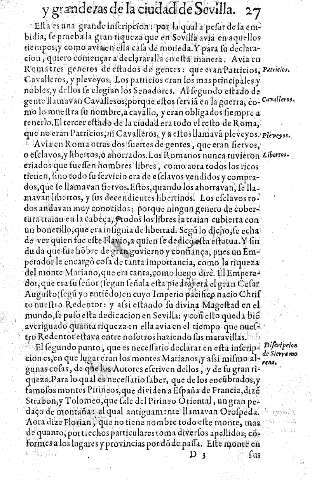 y grandezas de la ciudad de Sevilla. 27
Esta es una grande inscripcion: por la qual a pesar de la em-
bidia, se prueba la gran riqueza que en Sevilla avia en aquellos
tiempos, y como avia en ella casa de moneda. Y para su declara-
cion, quiero començar a declararla en esta manera. Avia en
Roma tres generos de estados de gente: que eran Patricios, Patricios.
Cavalleros, y pleveyos. Los Patricios eran los mas principales y
nobles, y destos se elegian los Senadores. Al segundo estado de
gente llamavan Cavalleros; porque estos servian en la guerra, co- Cavalleros.
mo lo muestra su nombre, cavallo, y eran obligados siempre a
tenerlo. El tercer estado de la ciudad era todo el resto de Roma,
que no eran Patricios, ni Cavalleros, y a estos llamavã pleveyos. Pleveyos.
Avia en Roma otras dos suertes de gentes, que eran siervos,
o esclavos, y libertos, o ahorrados. Los Romanos nunca tuvieron Libertos.
criados que fuessen hombres libres, como aora todos los ricos
tienen, sino todo su servicio era de esclavos vendidos y compra-
dos, que se llamavan siervos. Estos, quando los ahorravan, se lla-
mavan libertos, y sus decendientes libertinos. Los esclavos ro-
dos andavan muy conocidos; porque ningun genero de cober-
tura traian en la cabeça, y todos los libres la traian cubierta con
un bonetillo, que era insignia de libertad. Segũ lo dicho, se echa
de ver quien fue este Flavio, a quien se dedicò esta estatua. Y sin
duda que fue hõbre de gran govierno y confiança, pues un Em-
perador le encargò cosa de tanta importancia, como la riqueza
del monte Mariano, que era tanta, como luego dirè. El Empera-
dor, que era su señor (segun señala esta piedra) era el gran Cesar
Augusto; segũ yo entiẽdo: en cuyo Imperio pacifico nacio Christo
nuestro Redentor: y assi estando su divina Magestad en el
mundo, se puso esta dedicacion en Sevilla: y con esto queda biẽ
averiguado quanta riqueza en ella avia en el tiempo que nues-
tro Redentor estava entre nosotros haziendo sus maravillas.
El segundo punto, que es necessario declarar en esta inscrip- Discripcion
cion, es, en que lugar eran los montes Marianos, y assi mismo al- de Sierra mo
gunas cosas, de que los Autores escriven dellos, y de su gran ri- rena.
queza. Para lo qual es necessario saber, que de los encũbrados, y
famosos montes Pirineos, que dividen a España de Francia, dize
Strabon, y Tolomeo, que sale del Pirineo Oriental, un gran pe-
daço de montaña: al qual antiguamente llamavan Orospeda.
Nota dize Florian, que no tiene nombre todo este monte, mas
de quanto, por trechos particulares toma diversos apellidos, cõ-
formes a los lugares y provincias por dõ de passa. Este monte en
D 3 sus